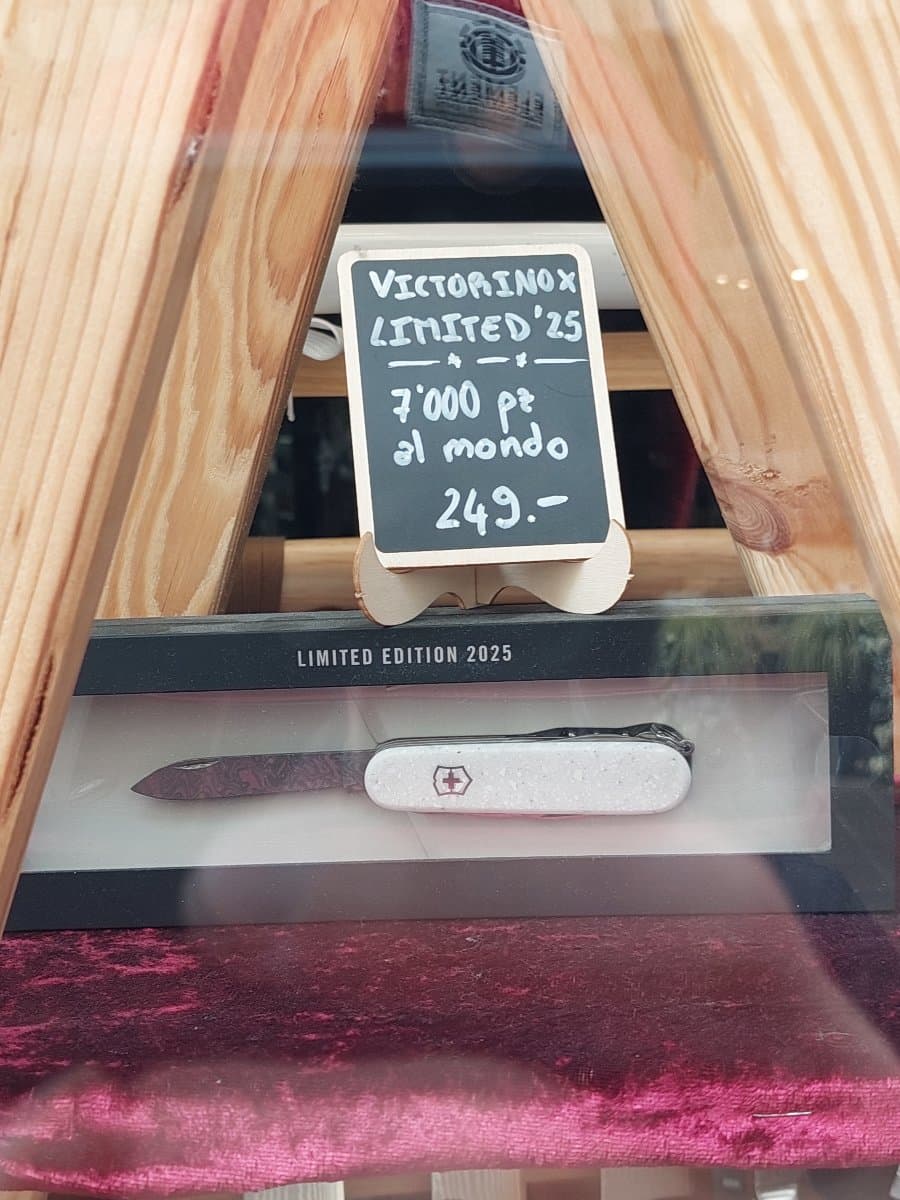 ELEMENT
VICTORINOX
LIMITED '25
7'000 pz
al mondo
249.-
LIMITED EDITION 2025